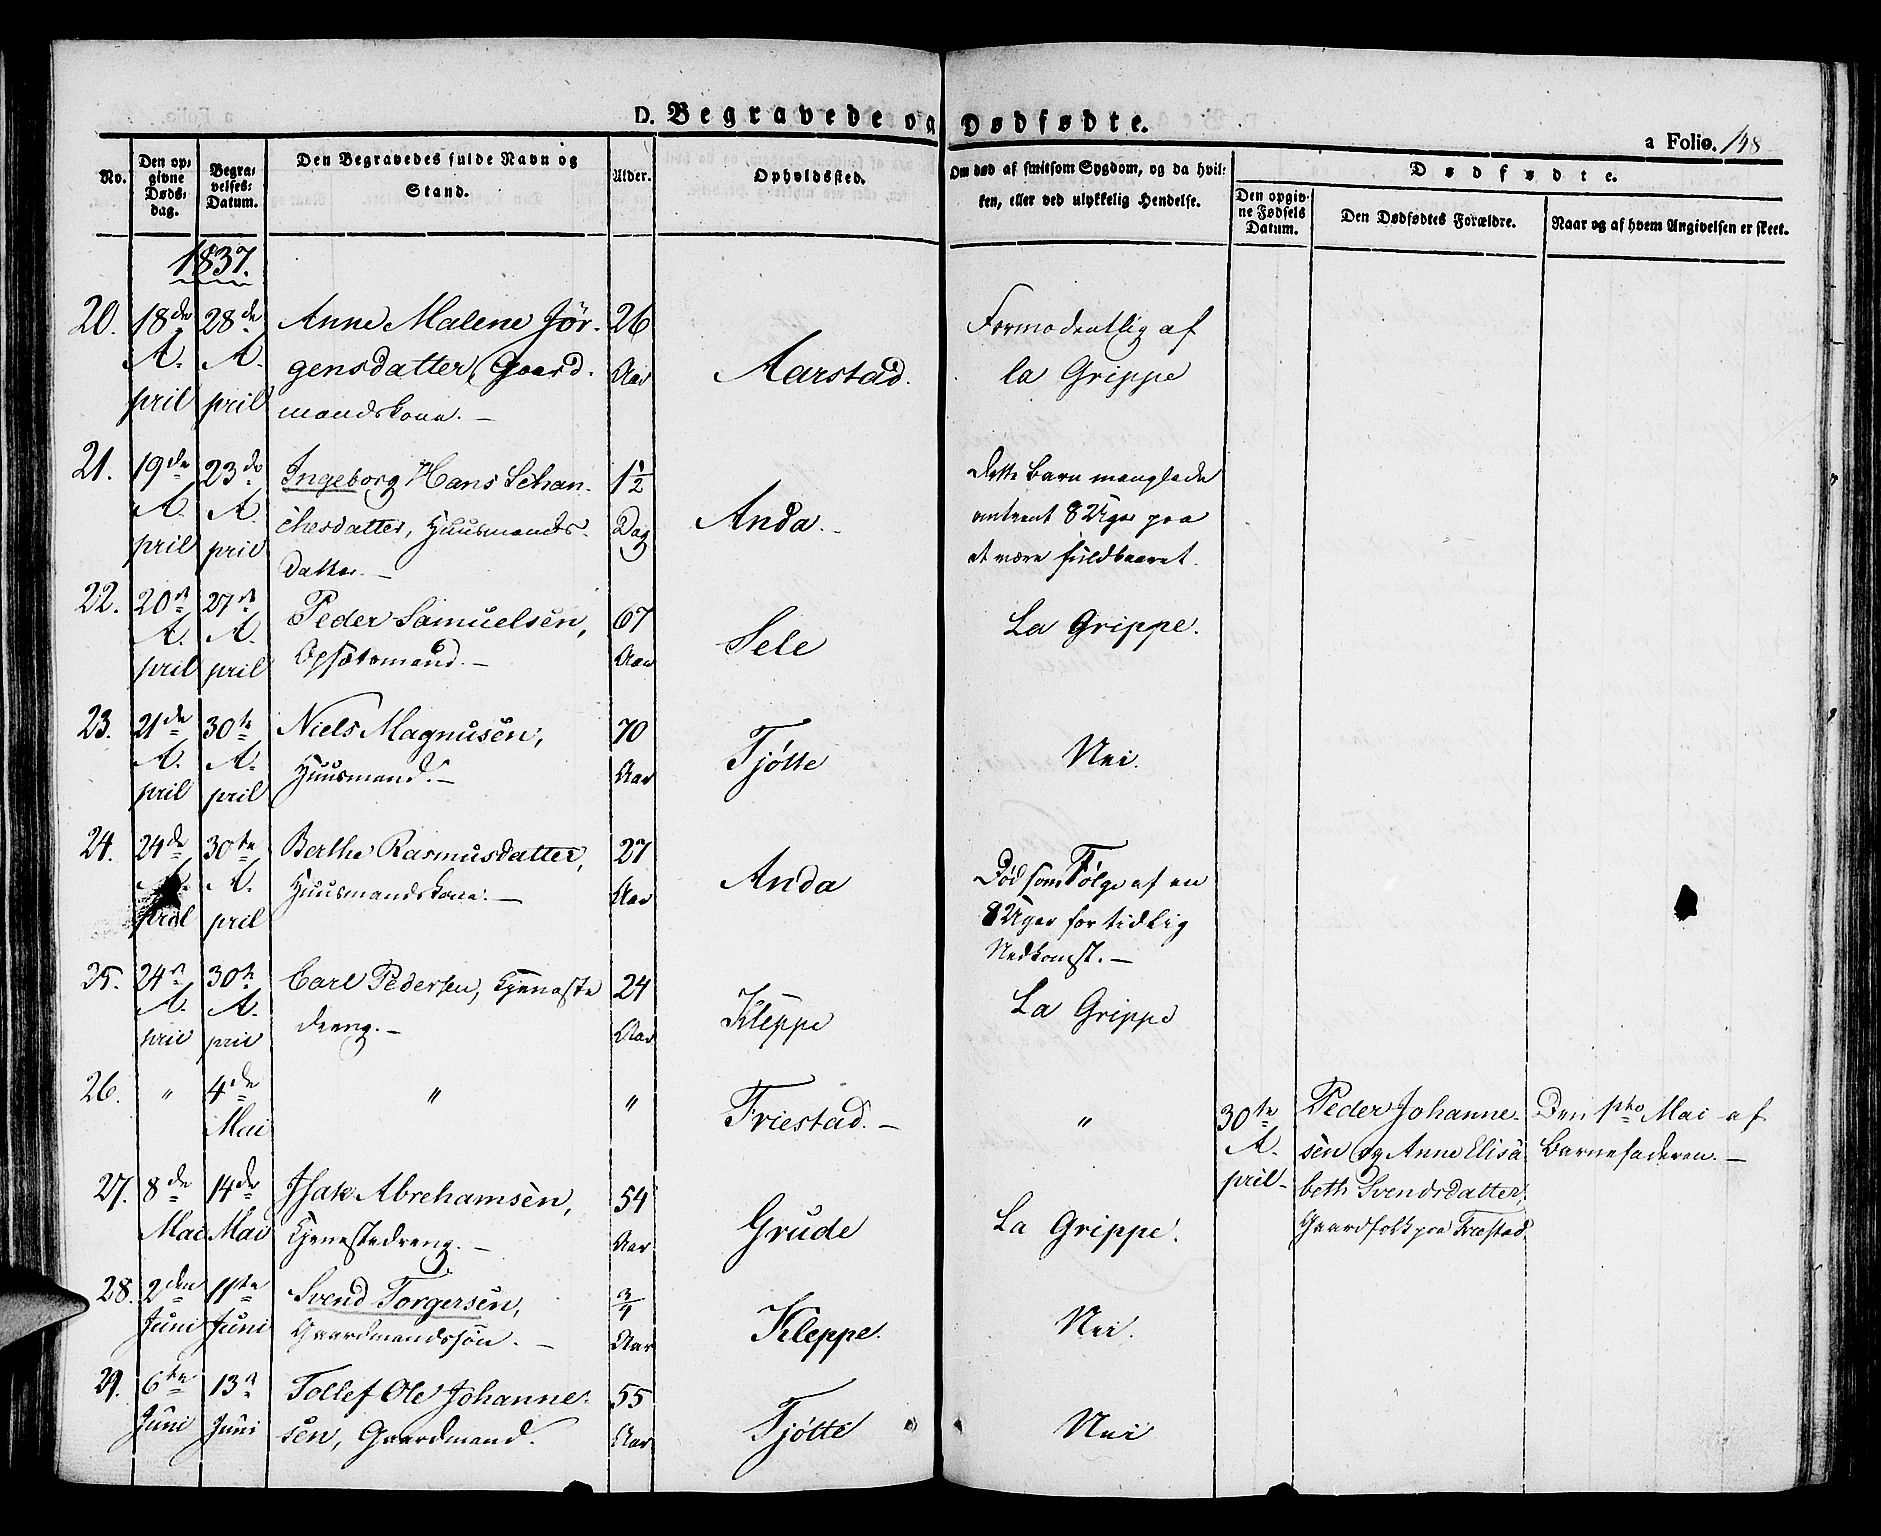 D. Begravede og Dødfødte.
a Folio. 148
No.
Den op-
givne
Døds-
dag.
Begra-
velses-
Datum.
Den Begravedes fulde Navn og
Stand.
Alder.
Opholdssted.
Om død af smitsom Sygdom, og da hvil-
ken, eller ved ulykkelig Hendelse.
Dødfødte.
Den opgiv-
ne Fødsels
Datum.
Den Dødfødtes Forældre.
Naar og af hvem Angivelsen er skeet.
1837.
20.
18de
A.
pril
28de
A.
pril
Anne Malene Jör-
gensdatter, Gaard-
mandskone. —
26
Aar
Aarstad.
Formodentlig af
la Grippe
21.
19de
A.
pril
23de
A.
pril
Ingeborg Hans Schan-
chesdatter, Huusmands-
datter. —
1½
Dag
Anda. -
Dette Barn manglede
omtrent 8 Uger paa
at være fuldbaaret.
22.
20n
A.
pril
27n
A.
pril
Peder Samuelsen,
Opsætsmand. —
67
Aar
Sele
La Grippe.
23.
21de
A.
pril
30te
A.
pril
Niels Magnusen,
Huusmand. —
70
Aar
Tjötte
Nei.
24.
24de
A.
pril
30te
A.
pril
Berthe Rasmusdatter,
Huusmandskone. —
27
Aar
Anda
Död som Fölge af en
8 Uger for tidlig
Nedkomst. —
25.
24n
A.
pril
30te
A.
pril
Carl Pedersen, Tjeneste
dreng. —
24
Aar
Kleppe
La Grippe
26.
"
4de
Mai
"
"
Friestad. —
"
30te
A.
pril
Peder Johanne-
sen og Anne Elisa
beth Svendsdatter,
Gaardfolk paa Friestad
Den 1ste Mai af
Barnefaderen. —
27.
8de
Mai
14de
Mai
Isak Abrehamsen,
Tjenestedreng. —
54
Aar
Grude
La Grippe.
28.
2den
Juni
11te
Juni
Svend Torgersen,
Gaardmandssön. —
3/4
Aar
Kleppe.
Nei.
29.
6te
Juni
13n
Juni
Tollef Ole Johanne-
sen, Gaardmand.
55
Aar
Tjötte
Nei